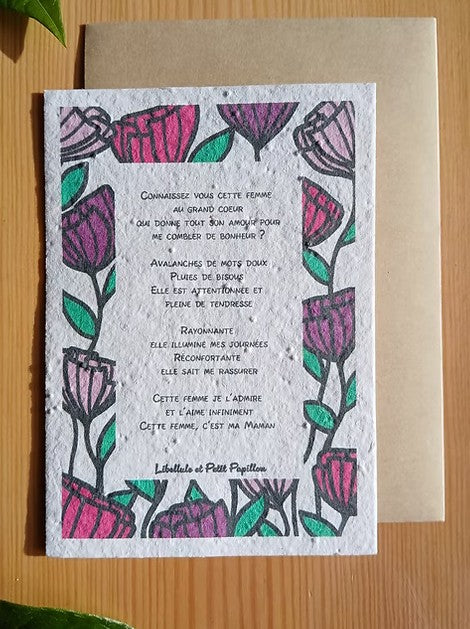 Connaissez vous cette femme
au grand coeur
qui donne tout son amour pour
me combler de bonheur ?
Avalanches de mots doux
Pluies de bisous
Elle est attentionnée et
pleine de tendresse
Rayonnante
elle illumine mes journées
Réconfortante
elle sait me rassurer
Cette femme je l'admire
et l'aime infiniment
Cette femme, c'est ma Maman
Libellule et Petit Papillon